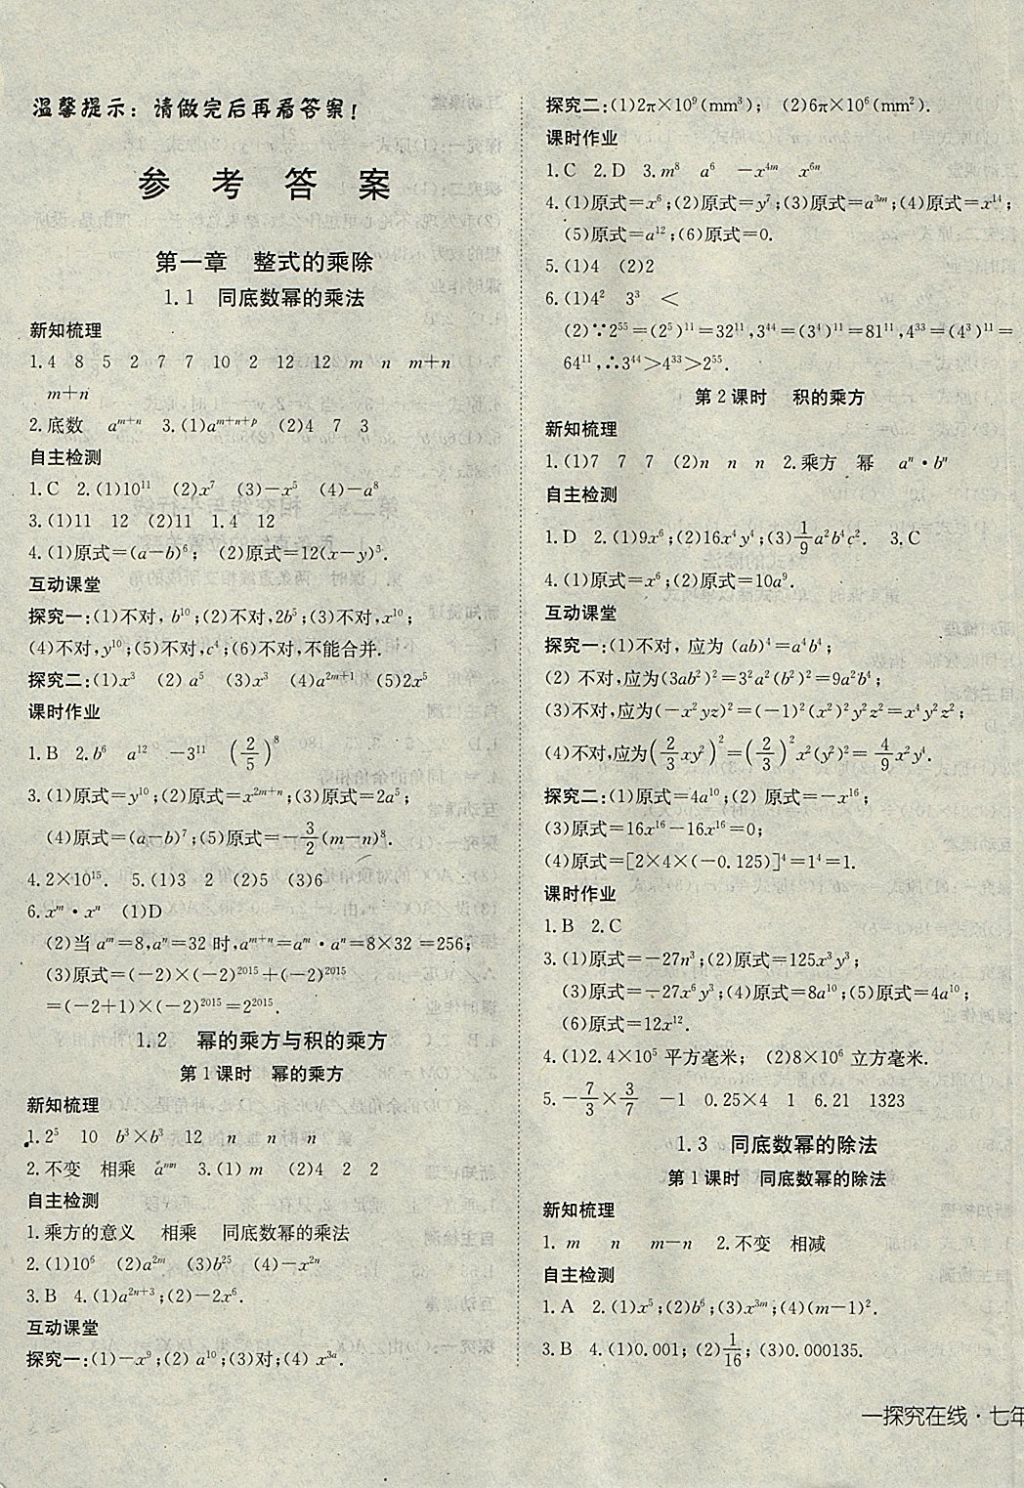 温馨提示：请做完后再看答案！
参考答案
第一章 整式的乘除
1.1 同底数幂的乘法
新知梳理
1.4 8 5 2 7 7 10 2 12 12 m n m＋n
m＋n
2.底数 a^{m＋n} 3.(1)a^{m＋n＋p} (2)4 7 3
自主检测
1.C 2.(1)10^{11} (2)x^7 (3)－x^5 (4)－a^8
3.(1)11 12 (2)11 1.4 12
4.(1)原式＝(a－b)^6； (2)原式＝12(x－y)^3.
互动课堂
探究一：(1)不对，b^{10}；(2)不对，2b^5；(3)不对，x^{10}；
(4)不对，y^{10}；(5)不对，c^4；(6)不对，不能合并.
探究二：(1)x^3 (2)a^5 (3)x^3 (4)a^{2m＋1} (5)2x^5
课时作业
1.B 2.b^6 a^{12} －3^{11} (2/5)^8
3.(1)原式＝y^{10}；(2)原式＝x^{2m＋n}；(3)原式＝2a^5；
(4)原式＝(a－b)^7；(5)原式＝－3/2(m－n)^8.
4.2×10^{15}. 5.(1)3 2 (2)5 (3)6
6.x^m·x^n (1)D
(2)当 a^m＝8,a^n＝32 时,a^{m＋n}＝a^m·a^n＝8×32＝256；
(3)原式＝(－2)×(－2)^{2015}＋(－2)^{2015}
＝(－2＋1)×(－2)^{2015}＝2^{2015}.
1.2 幂的乘方与积的乘方
第1课时 幂的乘方
新知梳理
1.2^5 10 b^3×b^3 12 n n n n
2.不变 相乘 a^{mn} 3.(1)m (2)4 2 2
自主检测
1.乘方的意义 相乘 同底数幂的乘法
2.(1)10^6 (2)a^{2m} (3)b^{25} (4)－x^{2n}
3.B 4.(1)a^{2n＋3}；(2)－2x^6.
互动课堂
探究一：(1)－x^9；(2)a^{10}；(3)对；(4)x^{3a}.
探究二：(1)2π×10^9(mm^3)； (2)6π×10^6(mm^2).
课时作业
1.C 2.D 3.m^8 a^6 －x^{4m} x^{6n}
4.(1)原式＝x^6；(2)原式＝y^7；(3)原式＝a^{3m}；(4)原式＝x^{14}；
(5)原式＝a^{12}；(6)原式＝0.
5.(1)4 (2)2
6.(1)4^2 3^3 ＜
(2)∵2^{55}＝(2^5)^{11}＝32^{11},3^{44}＝(3^4)^{11}＝81^{11},4^{33}＝(4^3)^{11}＝
64^{11},∴3^{44}＞4^{33}＞2^{55}.
第2课时 积的乘方
新知梳理
1.(1)7 7 7 (2)n n n 2.乘方 幂 a^n·b^n
自主检测
1.D 2.(1)9x^6；(2)16x^4y^4；(3)1/9a^2b^4c^2. 3.C
4.(1)原式＝x^6；(2)原式＝10a^9.
互动课堂
探究一：(1)不对，应为 (ab)^4＝a^4b^4；
(2) 不对，应为(3ab^2)^2＝3^2a^2(b^2)^2＝9a^2b^4；
(3)不对，应为(－x^2yz)^2＝(－1)^2(x^2)^2y^2z^2＝x^4y^2z^2；
(4)不对，应为(2/3xy^2)^2＝(2/3)^2x^2(y^2)^2＝4/9x^2y^4.
探究二：(1)原式＝4a^{10}；(2) 原式＝－x^{16}；
(3)原式＝16x^{16}－16x^{16}＝0；
(4)原式＝[2×4×(－0.125)]^4＝1^4＝1.
课时作业
1.B 2.C
3.(1)原式＝－27n^3；(2)原式＝125x^3y^3；
(3)原式＝－27x^6y^3；(4)原式＝8a^{10}；(5)原式＝4a^{10}；
(6)原式＝12x^{12}.
4.(1)2.4×10^5 平方毫米； (2)8×10^6 立方毫米.
5.－7/3×3/7 －1 0.25×4 1 6.21 1323
1.3 同底数幂的除法
第1课时 同底数幂的除法
新知梳理
1.m n m－n 2.不变 相减
自主检测
1.A 2.(1)x^5；(2)b^6；(3)x^{3m}；(4)(m－1)^2.
3.B 4.(1)0.001；(2)1/16；(3)0.000135.
一探究在线·七年